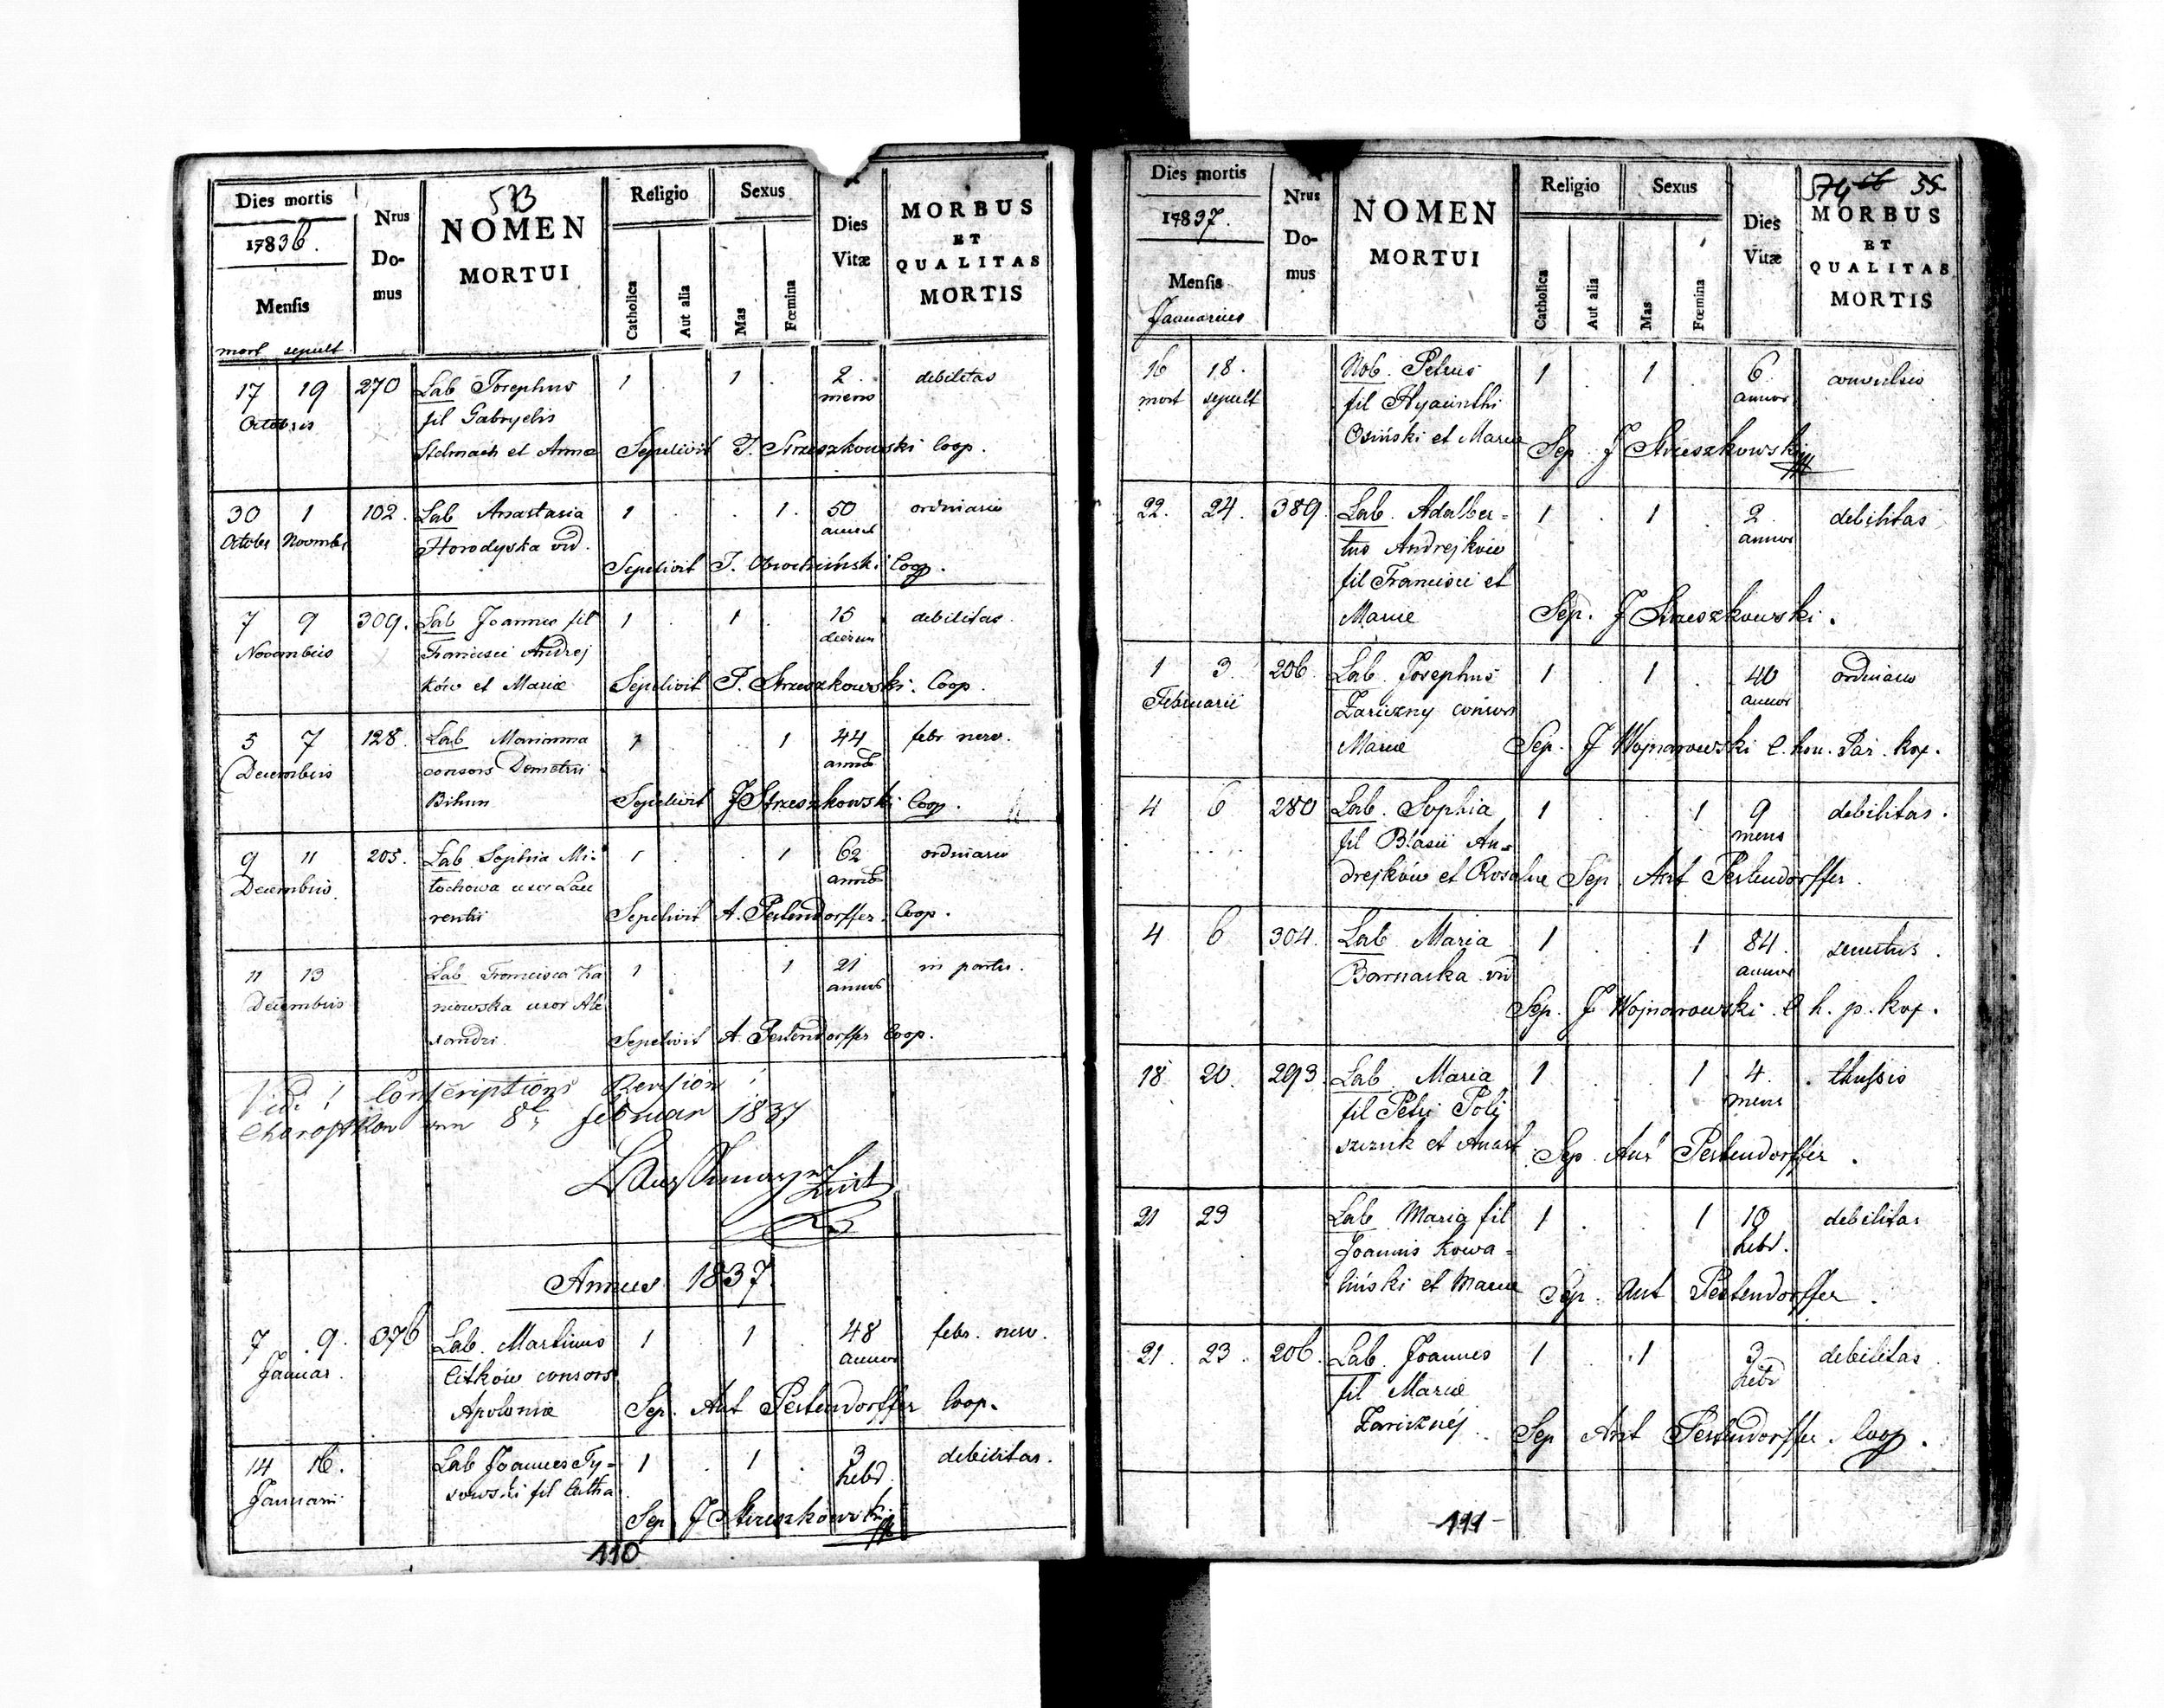 573
Dies mortis
Nrus Domus
NOMEN MORTUI
Religio
Sexus
Dies Vitæ
MORBUS ET QUALITAS MORTIS
17836.
Mensis
Catholica
Aut alia
Mas
Fœmina
mort sepult
17 19 270 Lab Josephus 1 . 1 . 2. debilitas
Octobris fil Gabryelis mens
Stelmach et Anna Sepelivit J. Strzeszkowski Coop.
30 1 102. Lab Anastasia 1 . . 1. 50 ordinaria
October Novembr Horodyska vid. annor
Sepelivit J. Coop.
7 9 309. Lab Joannes fil 1 . 1 . 15 debilitas.
Novembris Francisci Andrej dierum
ków et Mariæ Sepelivit J. Strzeszkowski. Coop.
5 7 128. Lab Marianna 1 . 1 44 febr nerv.
Decembris consors Demetrii annor
Bihun Sepelivit J Strzeszkowski Coop.
9 11 205. Lab Sophia Mi- 1 . 1 62 ordinaria
Decembris tochowa uxor Lau annor
rentii Sepelivit A. Pestendorffer. Coop.
11 13 Lab Francisca Ka 1 . 1 21 in partu.
Decembris niowska uxor Ale annor
xandri. Sepelivit A. Pestendorffer Coop.
Vidi! Conscriptions Revision
Chorostkow am 8t februar 1837
Annus 1837.
7 .9. 376 Lab. Martinus 1 . 1 . 48 febr. nerv.
Januar. Citków consors annor
Apoloniæ Sep. Ant Pestendorffer Coop.
14 16. Lab Joannes Ty- 1 . 1 . 3 debilitas.
Januarii sowski fil Catha hebd.
Sep. J Strzeszkowski
110
574 56 55
Dies mortis
Nrus Domus
NOMEN MORTUI
Religio
Sexus
Dies Vitæ
MORBUS ET QUALITAS MORTIS
17837.
Mensis
Januarius
Catholica
Aut alia
Mas
Fœmina
16 18. Nob. Petrus 1 . 1 . 6. convulsio
mort sepult fil Hyacinthi annor
Osiński et Mariæ Sep. J Strzeszkowski
22. 24. 389. Lab. Adalber- 1 . 1 . 2. debilitas
tus Andrejków annor
fil Francisci et
Mariæ Sep. J Strzeszkowski.
1 3. 206. Lab. Josephus 1 . 1 . 40 ordinaria
Februarii Zariczny consors annor
Mariæ Sep. J Wojnarowski C. hon. Par. Kop.
4 6 280 Lab. Sophia 1 . . 1 9 debilitas.
fil Blasii An- mens
drejków et Rosaliæ Sep. Ant Pestendorffer.
4 6 304. Lab. Maria 1 . . 1 84. senectus.
Barnaska vid annor
Sep. J Wojnarowski. C h. p. Kop.
18 20. 293. Lab. Maria 1 . . 1 4. thussis
fil Petri Poly mens
szczuk et Anast. Sep. Ant Pestendorffer.
21 23 Lab Maria fil 1 . . 1 10 debilitas
Joannis Kowa- hebd.
liński et Mariæ Sep. Ant Pestendorffer.
21. 23. 206. Lab. Joannes 1 . 1 3 debilitas.
fil Mariæ hebd
Zaricznéj. Sep Ant Pestendorffer. Coop.
-111-